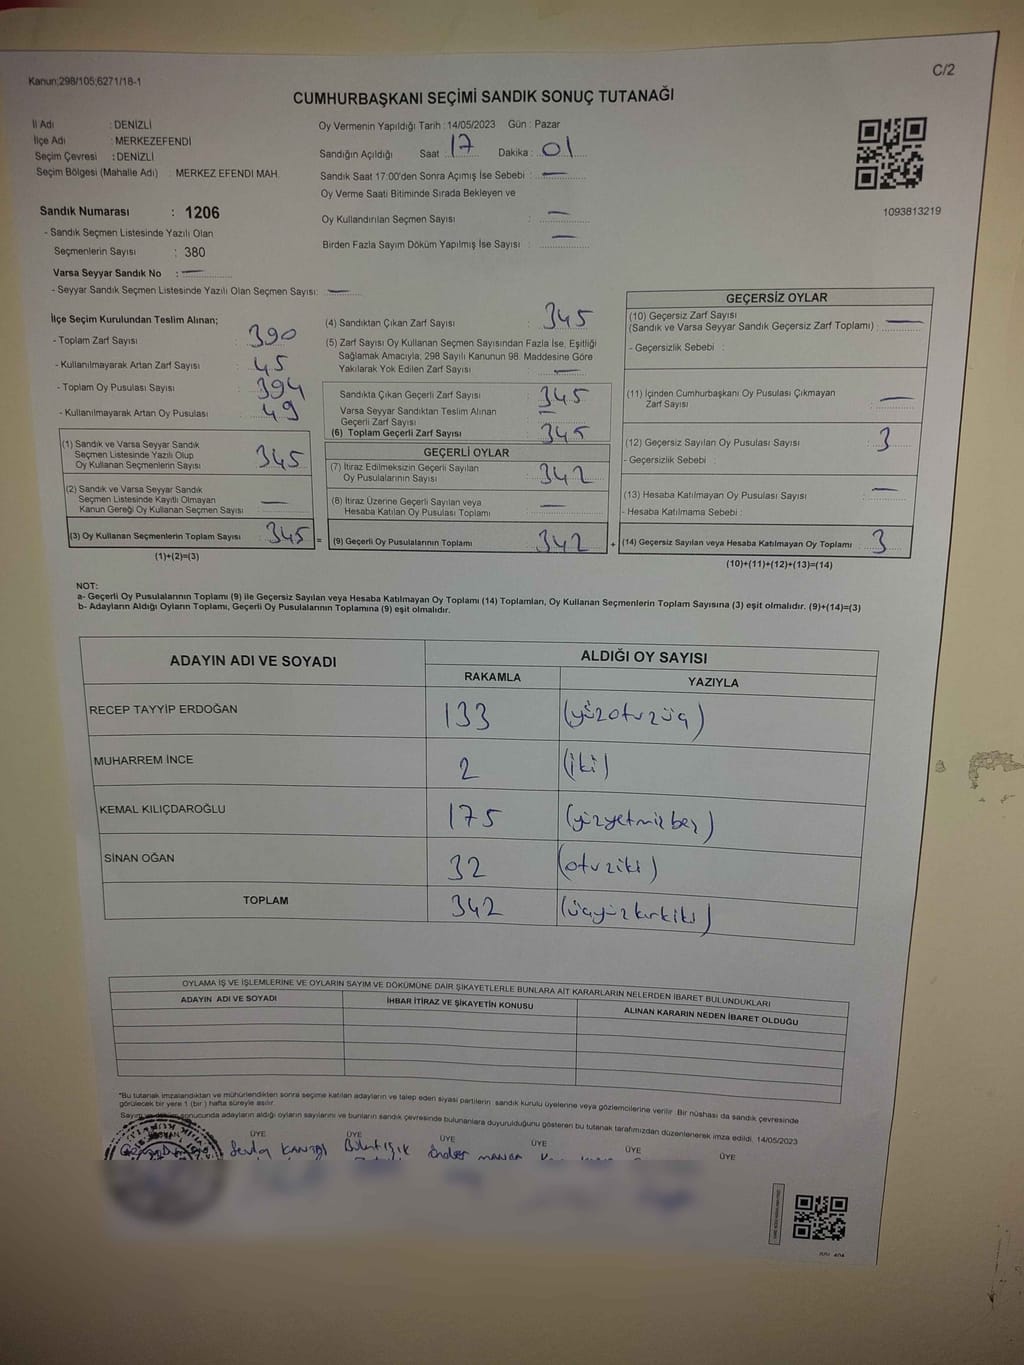 Kanun;298/105;6271/18-1
C/2
CUMHURBAŞKANI SEÇİMİ SANDIK SONUÇ TUTANAĞI
İl Adı : DENİZLİ
İlçe Adı : MERKEZEFENDİ
Seçim Çevresi : DENİZLİ
Seçim Bölgesi (Mahalle Adı) : MERKEZ EFENDİ MAH.
Sandık Numarası : 1206
- Sandık Seçmen Listesinde Yazılı Olan
Seçmenlerin Sayısı : 380
Varsa Seyyar Sandık No : —
- Seyyar Sandık Seçmen Listesinde Yazılı Olan Seçmen Sayısı: —
Oy Vermenin Yapıldığı Tarih : 14/05/2023 Gün : Pazar
Sandığın Açıldığı Saat : 17 Dakika : 01
Sandık Saat 17:00'den Sonra Açımış İse Sebebi : —
Oy Verme Saati Bitiminde Sırada Bekleyen ve
Oy Kullandırılan Seçmen Sayısı : —
Birden Fazla Sayım Döküm Yapılmış İse Sayısı : —
1093813219
İlçe Seçim Kurulundan Teslim Alınan;
- Toplam Zarf Sayısı : 390
- Kullanılmayarak Artan Zarf Sayısı : 45
- Toplam Oy Pusulası Sayısı : 394
- Kullanılmayarak Artan Oy Pusulası : 49
(1) Sandık ve Varsa Seyyar Sandık
Seçmen Listesinde Yazılı Olup
Oy Kullanan Seçmenlerin Sayısı : 345
(2) Sandık ve Varsa Seyyar Sandık
Seçmen Listesinde Kayıtlı Olmayan
Kanun Gereği Oy Kullanan Seçmen Sayısı : —
(3) Oy Kullanan Seçmenlerin Toplam Sayısı : 345
(1)+(2)=(3)
(4) Sandıktan Çıkan Zarf Sayısı : 345
(5) Zarf Sayısı Oy Kullanan Seçmen Sayısından Fazla İse, Eşitliği
Sağlamak Amacıyla; 298 Sayılı Kanunun 98. Maddesine Göre
Yakılarak Yok Edilen Zarf Sayısı : —
Sandıkta Çıkan Geçerli Zarf Sayısı : 345
Varsa Seyyar Sandıktan Teslim Alınan
Geçerli Zarf Sayısı : —
(6) Toplam Geçerli Zarf Sayısı : 345
GEÇERLİ OYLAR
(7) İtiraz Edilmeksizin Geçerli Sayılan
Oy Pusulalarının Sayısı : 342
(8) İtiraz Üzerine Geçerli Sayılan veya
Hesaba Katılan Oy Pusulası Toplamı : —
= (9) Geçerli Oy Pusulalarının Toplamı : 342
GEÇERSİZ OYLAR
(10) Geçersiz Zarf Sayısı
(Sandık ve Varsa Seyyar Sandık Geçersiz Zarf Toplamı) : —
- Geçersizlik Sebebi :
(11) İçinden Cumhurbaşkanı Oy Pusulası Çıkmayan
Zarf Sayısı : —
(12) Geçersiz Sayılan Oy Pusulası Sayısı : 3
- Geçersizlik Sebebi :
(13) Hesaba Katılmayan Oy Pusulası Sayısı : —
- Hesaba Katılmama Sebebi :
+ (14) Geçersiz Sayılan veya Hesaba Katılmayan Oy Toplamı : 3
(10)+(11)+(12)+(13)=(14)
NOT:
a- Geçerli Oy Pusulalarının Toplamı (9) ile Geçersiz Sayılan veya Hesaba Katılmayan Oy Toplamı (14) Toplamları, Oy Kullanan Seçmenlerin Toplam Sayısına (3) eşit olmalıdır. (9)+(14)=(3)
b- Adayların Aldığı Oyların Toplamı, Geçerli Oy Pusulalarının Toplamına (9) eşit olmalıdır.
ADAYIN ADI VE SOYADI ALDIĞI OY SAYISI
RAKAMLA YAZIYLA
RECEP TAYYİP ERDOĞAN 133 (yüzotuzüç)
MUHARREM İNCE 2 (iki)
KEMAL KILIÇDAROĞLU 175 (yüzyetmişbeş)
SİNAN OĞAN 32 (otuziki)
TOPLAM 342 (üçyüzkırkiki)
OYLAMA İŞ VE İŞLEMLERİNE VE OYLARIN SAYIM VE DÖKÜMÜNE DAİR ŞİKAYETLERLE BUNLARA AİT KARARLARIN NELERDEN İBARET BULUNDUKLARI
ADAYIN ADI VE SOYADI İHBAR İTİRAZ VE ŞİKAYETİN KONUSU ALINAN KARARIN NEDEN İBARET OLDUĞU
*Bu tutanak imzalandıktan ve mühürlendikten sonra seçime katılan adayların ve talep eden siyasi partilerin, sandık kurulu üyelerine veya gözlemcilerine verilir. Bir nüshası da sandık çevresinde
görülecek bir yere 1 (bir ) hafta süreyle asılır.
Sayım ve döküm sonucunda adayların aldığı oyların sayılarını ve bunların sandık çevresinde bulunanlara duyurulduğunu gösteren bu tutanak tarafımızdan düzenlenerek imza edildi. 14/05/2023
ÜYE ÜYE ÜYE ÜYE ÜYE ÜYE